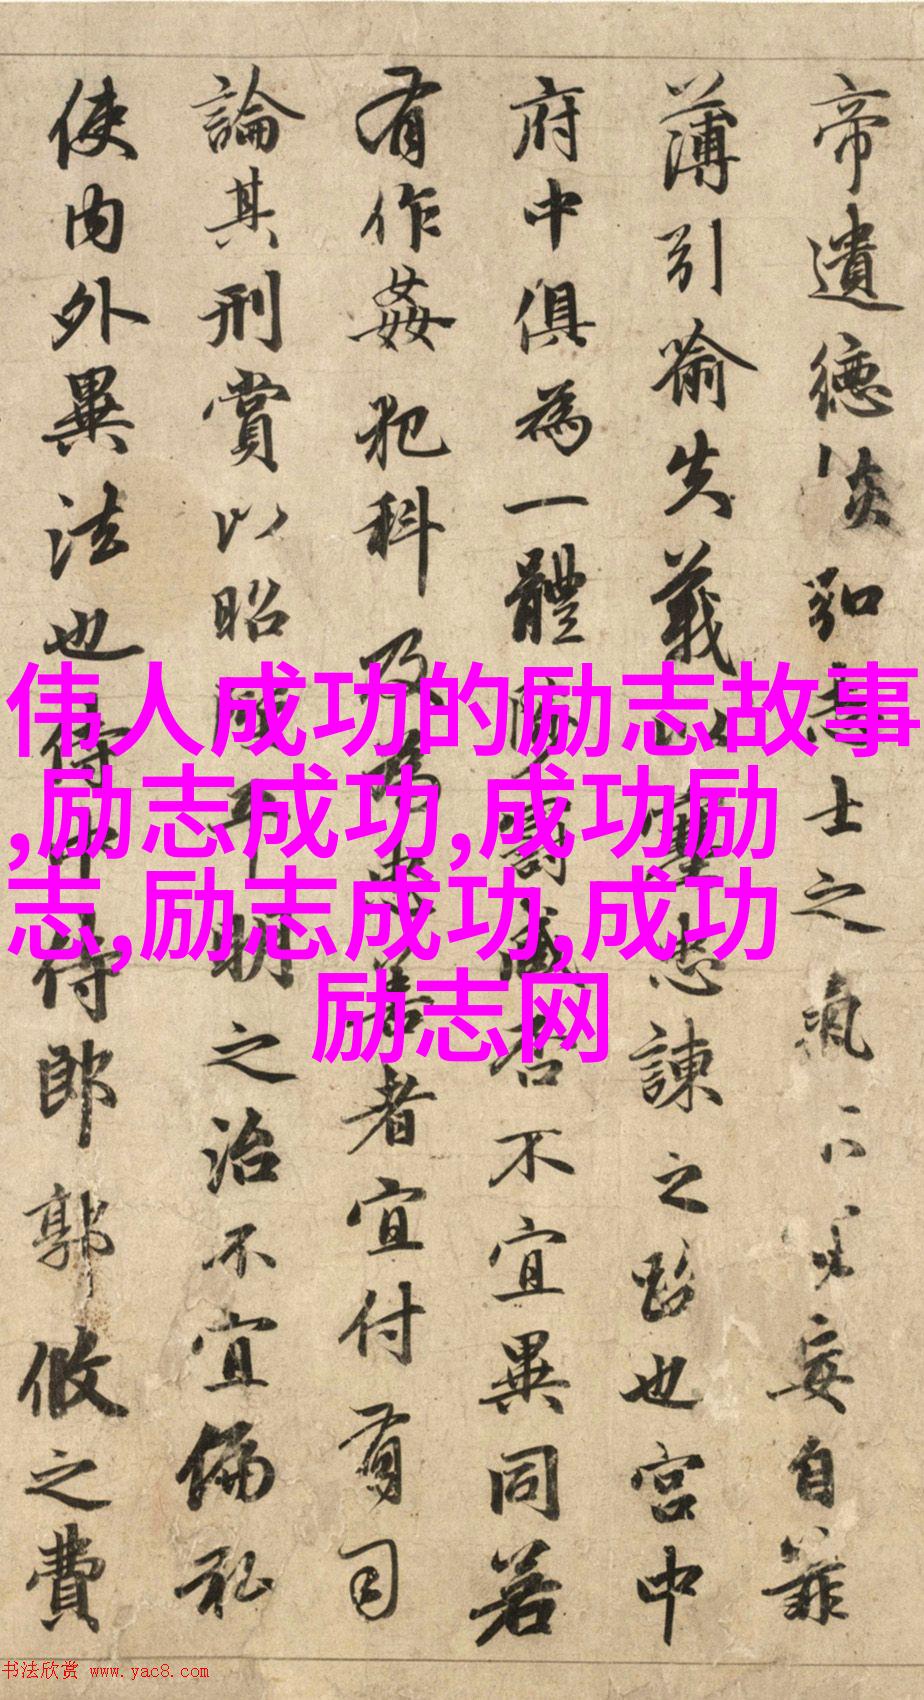 伟人成功的励志故事
,励志成功,成功励
志,励志成功,成功
励志网
帝遺德恢弘志士之氣不妄自菲
薄引喻失義以塞忠諫之路也宮中
府中俱為一體陟罰臧否不宜異同若
有作姦犯科及為忠善者宜付有司
論其刑賞以昭平明之治不宜偏私
使內外異法也侍中侍郎郭攸之費
书法欣赏 www.yac8.com